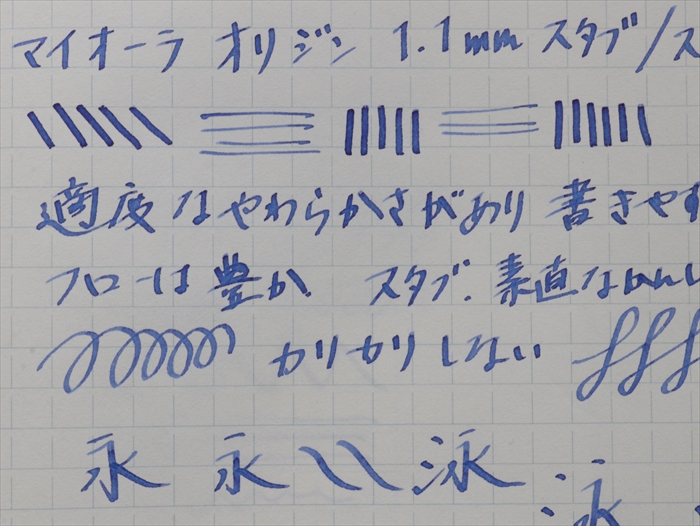 マイオーラ オリジン 1.1mm スタブ/ス
適度なやわらかさがあり 書きやす
フローは豊か スタブ. 素直なかんじ
カリカリしない
永 永 泳
泳